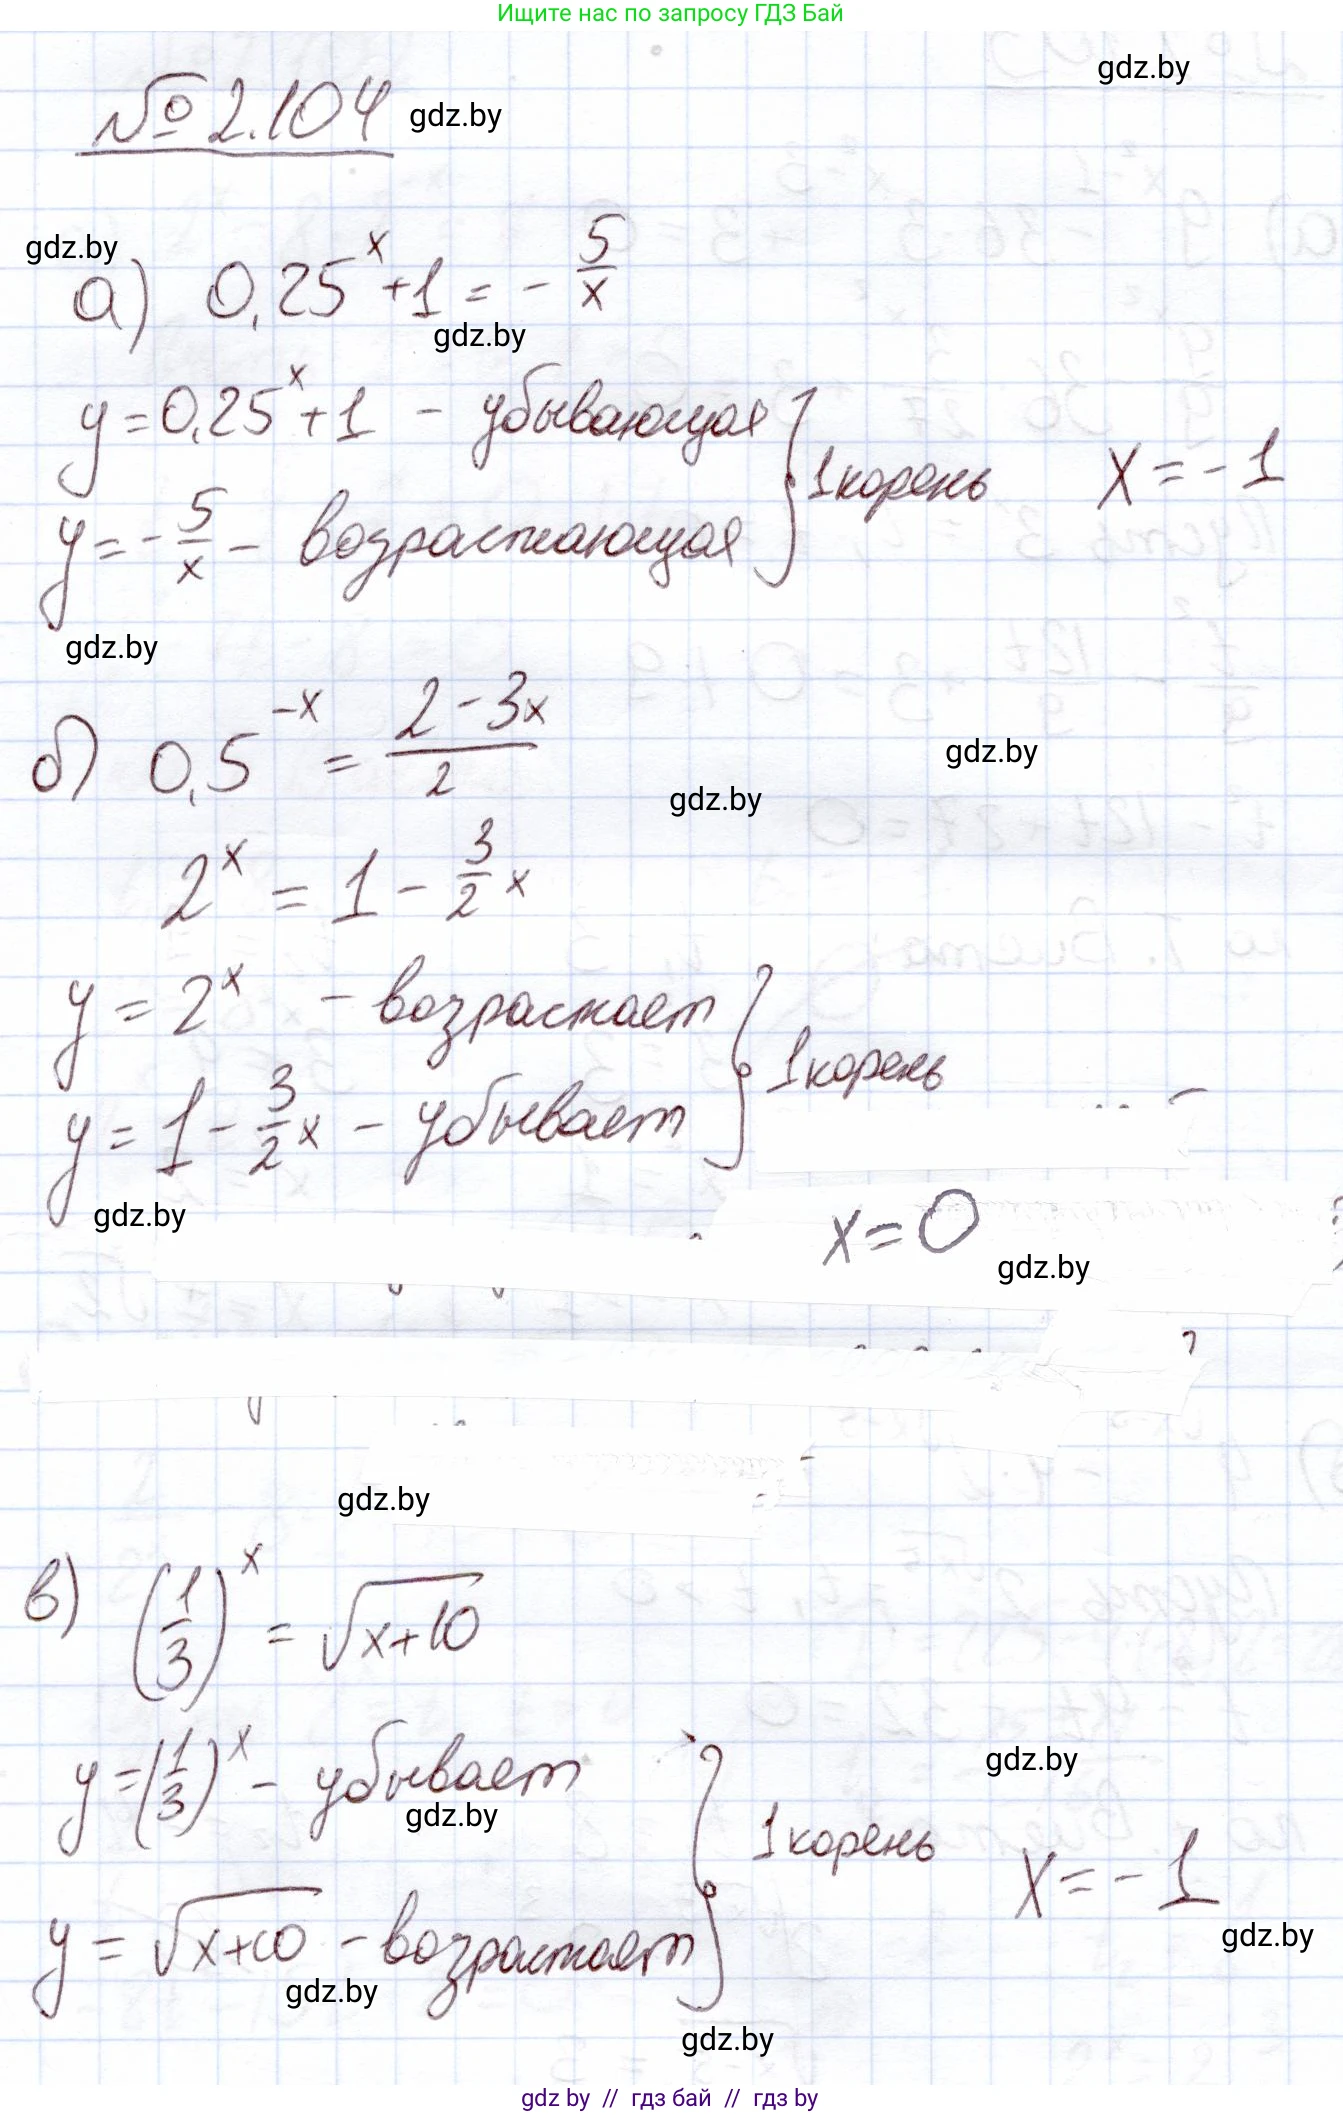 Ищите нас по запросу ГДЗ Бай
gdz.by
№ 2.104 gdz.by
gdz.by
а) 0,25^x + 1 = - 5/x
gdz.by
y = 0,25^x + 1 - убывающая
1 корень x = -1
y = - 5/x - возрастающая
gdz.by
б) 0,5^-x = (2 - 3x)/2
gdz.by
gdz.by
2^x = 1 - 3/2 x
y = 2^x - возрастает
1 корень
y = 1 - 3/2 x - убывает
gdz.by
x = 0
gdz.by
gdz.by
в) (1/3)^x = √(x+10)
y = (1/3)^x - убывает
gdz.by
gdz.by
1 корень x = -1
gdz.by
y = √(x+10) - возрастает
gdz.by
gdz.by
gdz by // гдз бай // гдз by